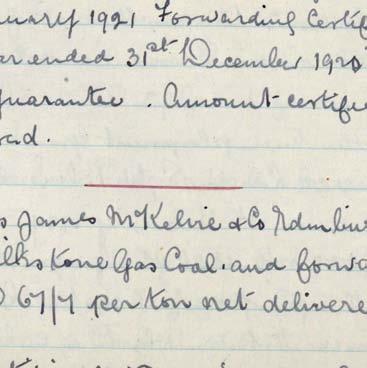 nuary 1921 Forwarding Certif
ar ended 31st December 1920
guarantee. Amount certifie
ad.
s James McKelvie & Co Edinbu
ilkstone Gas Coal. and forwa
67/7 per ton net delivere